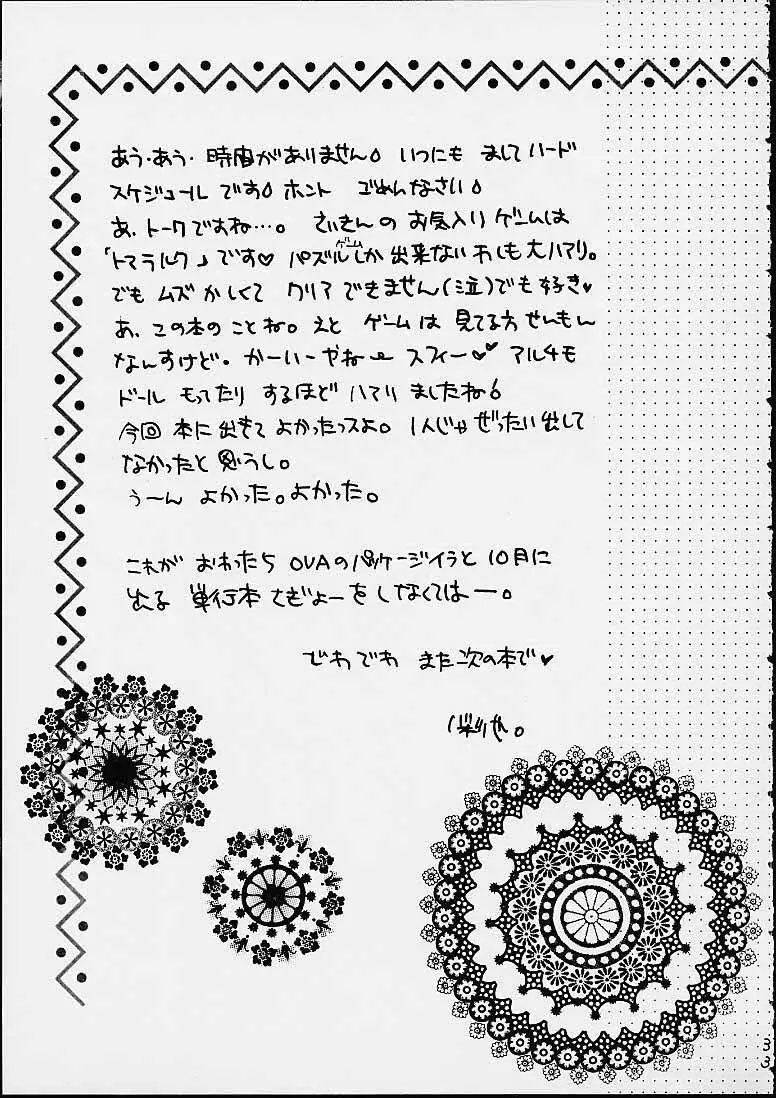 あう・あう・時間がありません。いつにも ましてハード
スケジュール です。ホント ゴめんなさい。
あ、トークですね…。さいきんの お気入りゲームは
「トマランク」です♡ パズルゲームしか出来ないわしも大ハマリ。
でも ムズかしくて クリアできません(泣)でも好き♥
あ、この本のことね。えと ゲームは 見てる方せんもん
なんすけど。かーいーやねー スフィー♥♥ アルチモ
ドール もってたり するほど ハマリ ましたね。
今回 本に出きて よかったっスよ。1人じゃぜったい出して
なかったと思うし。
うーん よかった。よかった。
これが おわったら OVAのパッケージイラと 10月に
出る 単行本 さぎょーを しなくてはー。
でわでわ また次の本で♥
33